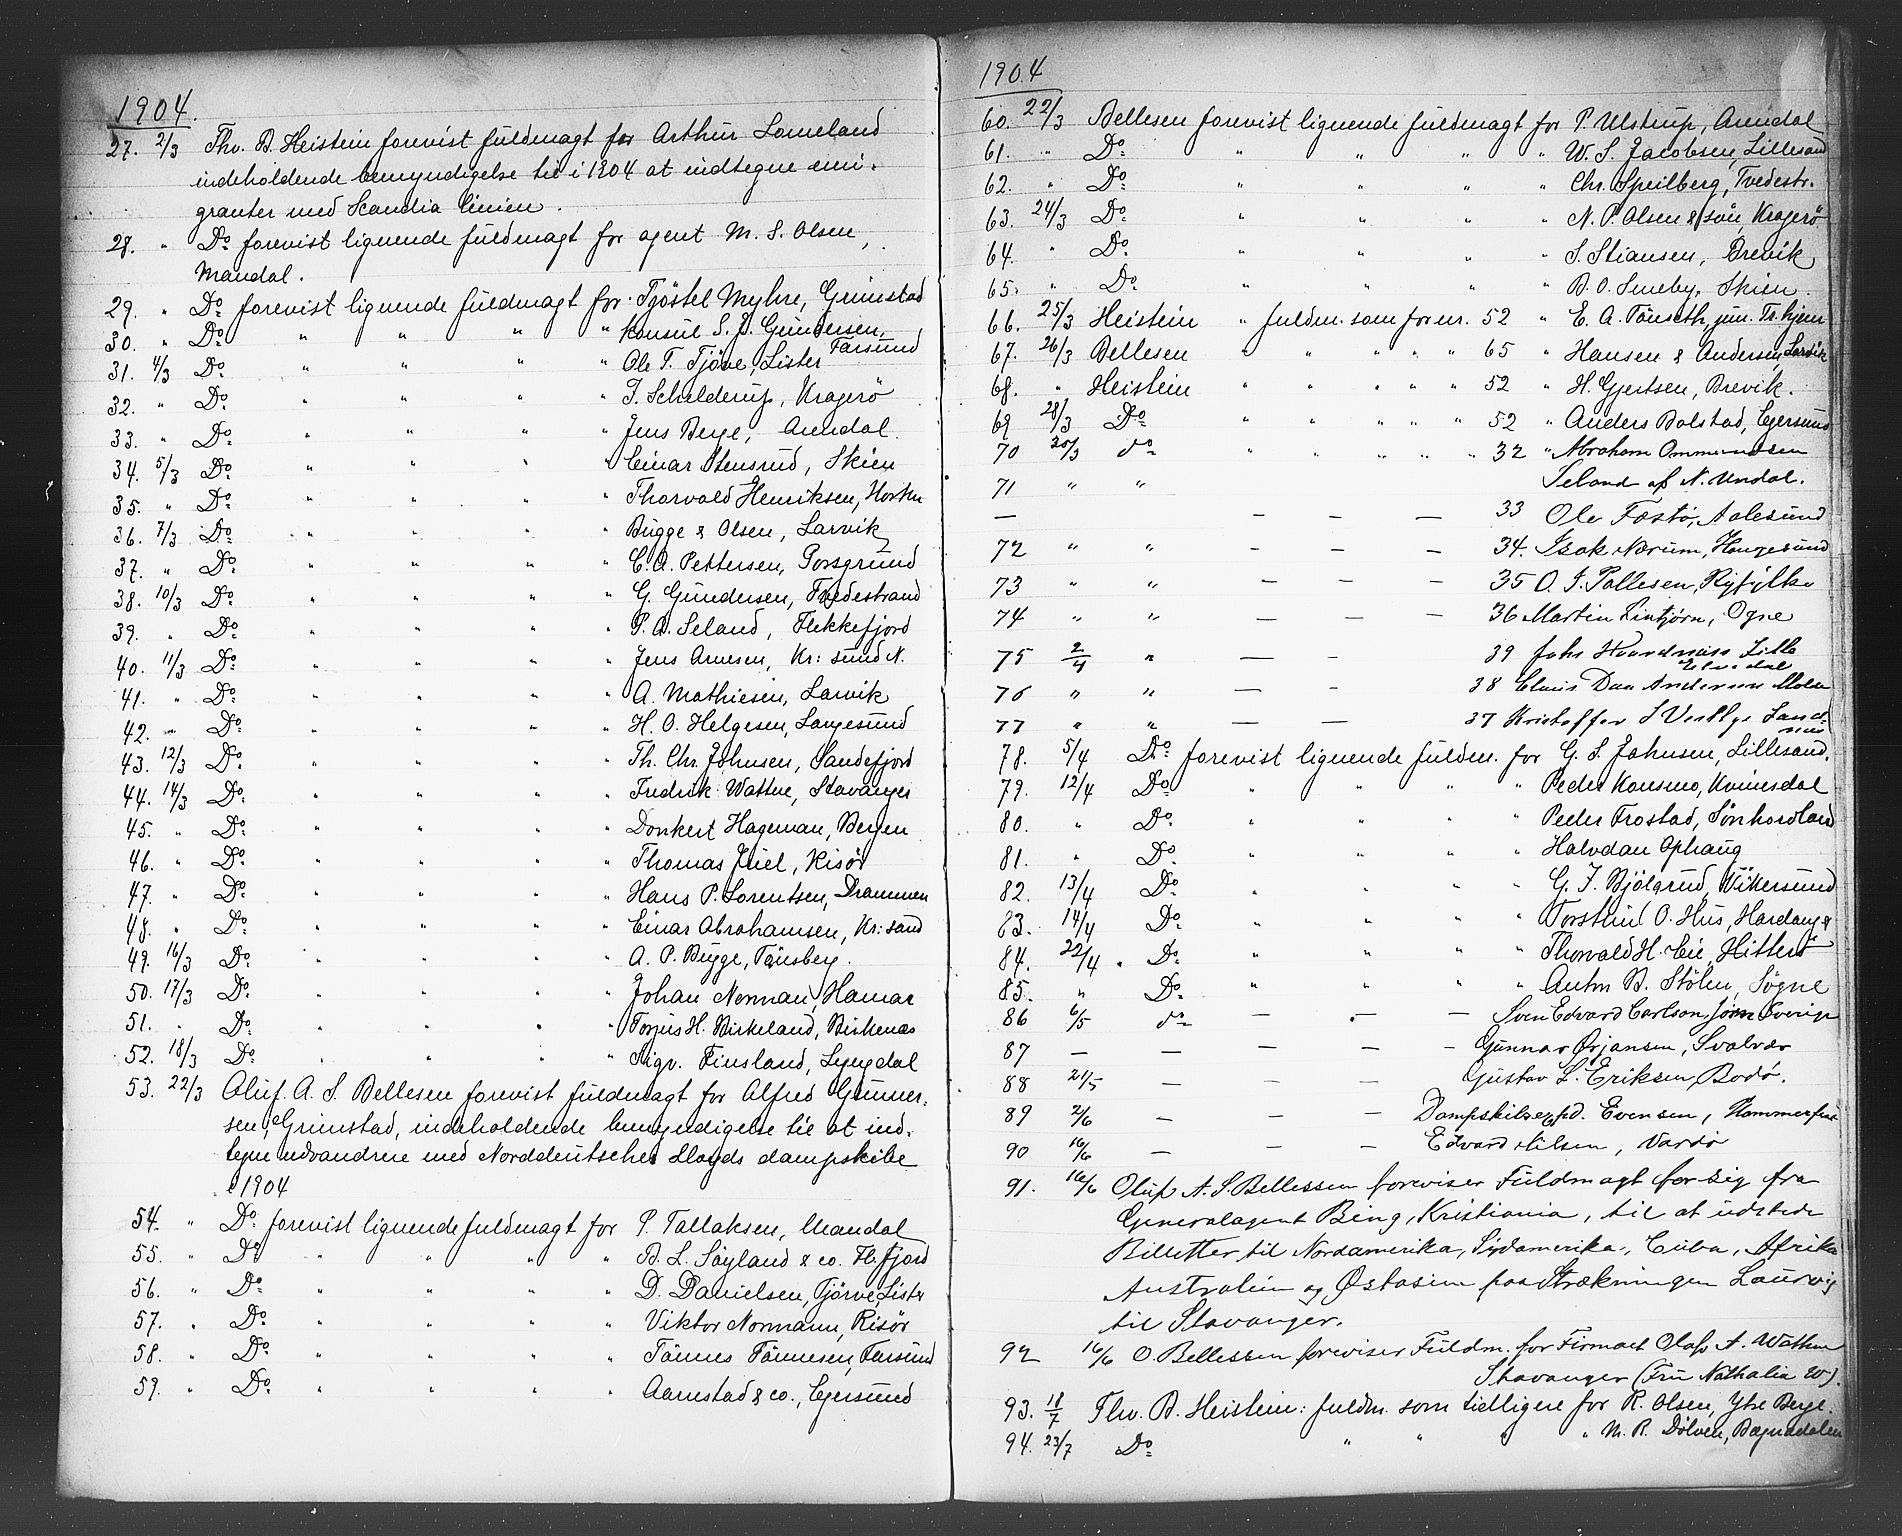 1904.
27. 2/3 Thv. B. Heistein forevist fuldmagt for Arthur Lomeland
indeholdende bemyndigelse til i 1904 at indtegne emi-
granter med Scandia linien.
28. " Do forevist lignende fuldmagt for agent M. S. Olsen,
Mandal.
29. " Do forevist lignende fuldmagt for Tjöstel Myhre, Grimstad
30. " Do " " " " Konsul S. J. Gundersen,
Farsund
31. 4/3 Do " " " " Ole T. Tjöve, Lister
32. " Do " " " " J. Schelderup, Kragerö
33. " Do " " " " Jens Berge, Arendal.
34. 5/3 Do " " " " Einar Stensrud, Skien
35. " Do " " " " Thorvald Henriksen, Horten
36. 7/3 Do " " " " Bugge & Olsen, Larvik
37. " Do " " " " C. A. Pettersen, Porsgrund
38. 10/3 Do " " " " G. Gundersen, Tvedestrand
39. " Do " " " " P. A. Seland, Flekkefjord
40. 11/3 Do " " " " Jens Arnesen, Kr: sund N.
41. " Do " " " " A. Mathiesen, Larvik
42. " Do " " " " H. O. Helgesen, Langesund
43. 12/3 Do " " " " Th. Chr. Johnsen, Sandefjord
44. 14/3 Do " " " " Fredrik Wattne, Stavanger
45. " Do " " " " Donkert Hageman, Bergen
46. " Do " " " " Thomas Juel, Risör
47. " Do " " " " Hans P. Lorentsen, Drammen
48. " Do " " " " Einar Abrahamsen, Kr: sand
49. 16/3 Do " " " " A. P. Bugge, Tönsberg.
50. 17/3 Do " " " " Johan Norman, Hamar
51. " Do " " " " Torjus H. Birkeland, Birkenæs
52. 18/3 Do " " " " Sigv. Finsland, Lyngdal
53. 22/3 Oluf A. S. Bellesen forevist fuldmagt for Alfred Gunner-
sen, Grimstad, indeholdende bemyndigelse til at ind-
tegne udvandrere med Norddeutsches Lloyds dampskibe
i 1904
54. " Do forevist lignende fuldmagt for P. Tallaksen, Mandal
55. " Do " " " " B. L. Söyland & co. Fl. fjord
56. " Do " " " " D. Danielsen, Tjörve, Lister
57. " Do " " " " Viktor Normann, Risör
58. " Do " " " " Tönnes Tönnesen, Farsund
59. " Do " " " " Aarrestad & co., Egersund
1904
60. 22/3 Bellesen forevist lignende fuldmagt for P. Ulstrup, Arendal
61. " Do " " " " W. S. Jacobsen, Lillesand
62. " Do " " " " Chr. Speilberg, Tvedestr.
63. 24/3 Do " " " " N. P. Olsen & sön, Kragerö
64. " Do " " " " S. Stiansen, Brevik
65. " Do " " " " B. O. Smeby, Skien.
66. 25/3 Heistein " fuldm. som for nr. 52 " E. A. Tönseth, jun. Tr.hjem
67. 26/3 Bellesen " " " " " 65 " Hansen & Andersen, Larvik
68. " Heistein " " " " " 52 " H. Gjertsen, Brevik.
69 28/3 Do " " " " " 52 " Anders Bolstad, Egersund
70 30/3 do " " " " " 32 " Abraham Ommundsen
71 " " Seland af N. Undal.
— — — — 33 Ole Fostö, Aalesund
72 " " — — — 34. Isak Nærum, Haugesund
73 " " — — — 35 O. J. Pallesen, Ryfylke
74 " " — — — 36 Martin Lintjørn, Ogne
75 2/4 " — — 39 Johs Lille
Elvedal
76 " " — — 38 Andersen Molde
77 " " — — 37 Kristoffer J Sand-
nes
78. 5/4 Do forevist lignende fuldm. for G. S. Johnsen, Lillesand.
79. 12/4 Do " " " " Peder Konsmo, Kvinesdal
80. " Do " " " " Peder Frostad, Sönhordland
81. " Do " " " " Halvdan Ophaug
82. 13/4 Do " " " " G. J. Bjölgrud, Vikersund
83. 14/4 Do " " " " Torstein O. Hus, Hardanger
84. 22/4 Do " " " " Thorvald H. Eie, Hitterö
85. " Do " " " " Anton B. Stölen, Sögne
86 6/5 do — — — Sven Edvard Carlson, Sverige
87 — — — — — Gunnar Ørjansen, Svolvær
88 21/5 — — — Gustav L. Eriksen, Bodø.
89 2/6 — — — Dampskibsexpd. Evensen, Hammerfest
90 16/6 — — — Edvard Nilsen, Vardø
91. 16/6 Oluf A. S. Bellessen foreviser Fuldmagt for sig fra
Generalagent Bing, Kristiania, til at udstede
Billetter til Nordamerika, Sydamerika, Cuba, Afrika
Australien og Østasien paa Strækningen Laurvig
til Stavanger.
92 16/6 O. Bellessen foreviser Fuldm. for Firmaet Olaf A. Wattne
Stavanger (Fru Nathalia W).
93. 18/7 Thv. B. Heistein: fuldm. som tidligere for R. Olsen, Ytre Berge.
94. 23/7 Do " " " " M. R. Dölven, Bægnadalen